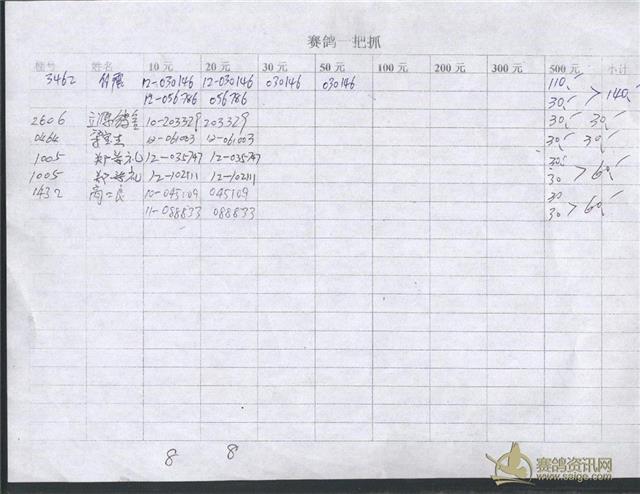 赛鸽一把抓
棚号 姓名 10元 20元 30元 50元 100元 200元 300元 500元 小计
3462 12-030146 12-030146 030146 030146 110.
12-056786 056786 30. > 140.
2606 10-203329 203329 30. 30.
0464 12-061003 12-061003 30. 30.
1005 郑芳礼 12-035747 12-035747 30.
1005 郑芳礼 12-102111 12-102111 30 > 60.
1432 商二良 10-045109 045109 30
11-088833 088833 30 > 60.
8 8
赛鸽资讯网
www.saige.com